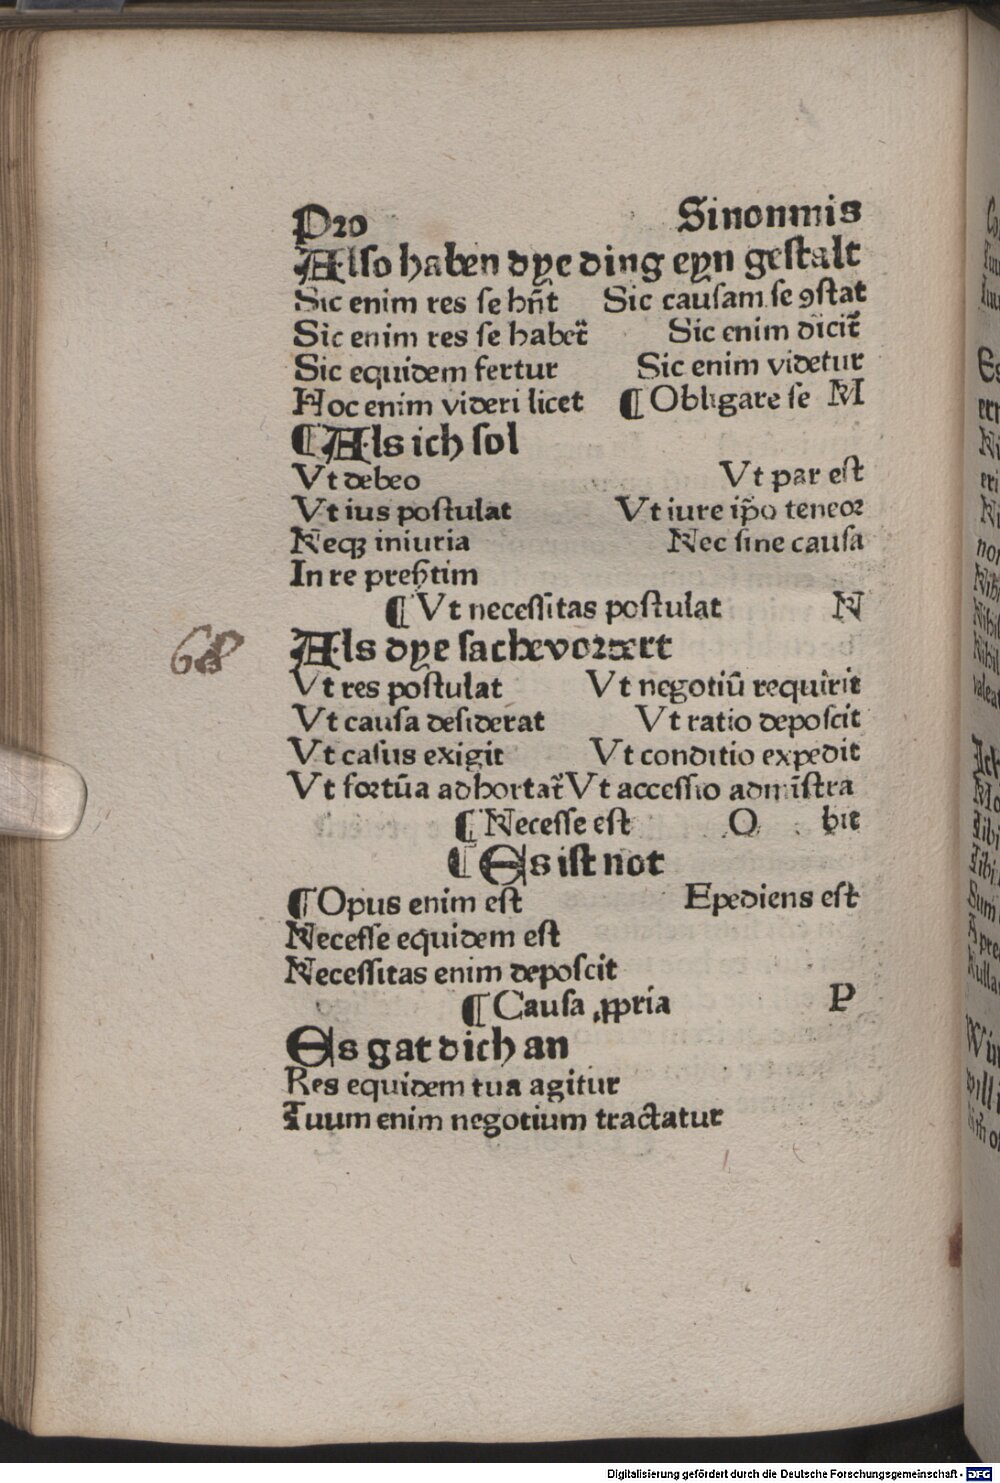 Pro Sinonmis
Also haben dye ding eyn gestalt
Sic enim res se hn̄t Sic causam se ꝯstat
Sic enim res se habet̃ Sic enim dicit̃
Sic equidem fertur Sic enim videtur
Hoc enim videri licet ¶ Obligare se M
¶ Als ich sol
Vt debeo Vt par est
Vt ius postulat Vt iure ip̄o teneor
Neqꝫ iniuria Nec sine causa
In re preſ̃tim
¶ Vt necessitas postulat N
68
Als dye sache vordert
Vt res postulat Vt negotiū requirit
Vt causa desiderat Vt ratio deposcit
Vt casus exigit Vt conditio expedit
Vt fortūa adhortat̃ Vt accessio admīstra
¶ Necesse est O bit
¶ Es ist not
¶ Opus enim est Epediens est
Necesse equidem est
Necessitas enim deposcit
¶ Causa ꝓpria P
Es gat dich an
Res equidem tua agitur
Tuum enim negotium tractatur
Digitalisierung gefördert durch die Deutsche Forschungsgemeinschaft - DFG